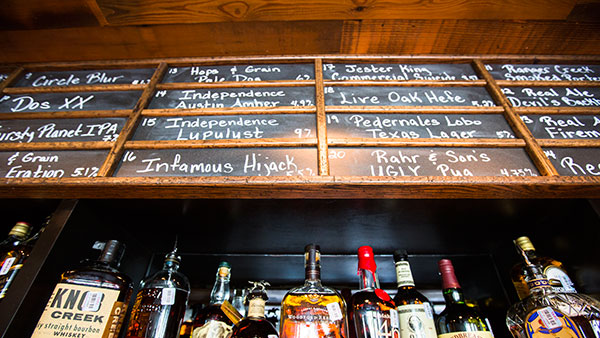 Circle Blur
Dos XX
Thirsty Planet IPA
& Grain
Eration 5.1%
13 Hops & Grain
Pale Dog 6%
14 Independence
Austin Amber
15 Independence
Lupulust 9%
16 Infamous Hijack
17 Jester King
Commercial Suicide
18 Live Oak Hefe
19 Pedernales Lobo
Texas Lager
20 Rahr & Son's
UGLY Pug 4.75%
Ranger Creek
Real Ale
Devil's Back
Real Ale
Firem
Rea
KNOB
CREEK
straight bourbon
WHISKEY
WOODFORD RESERVE